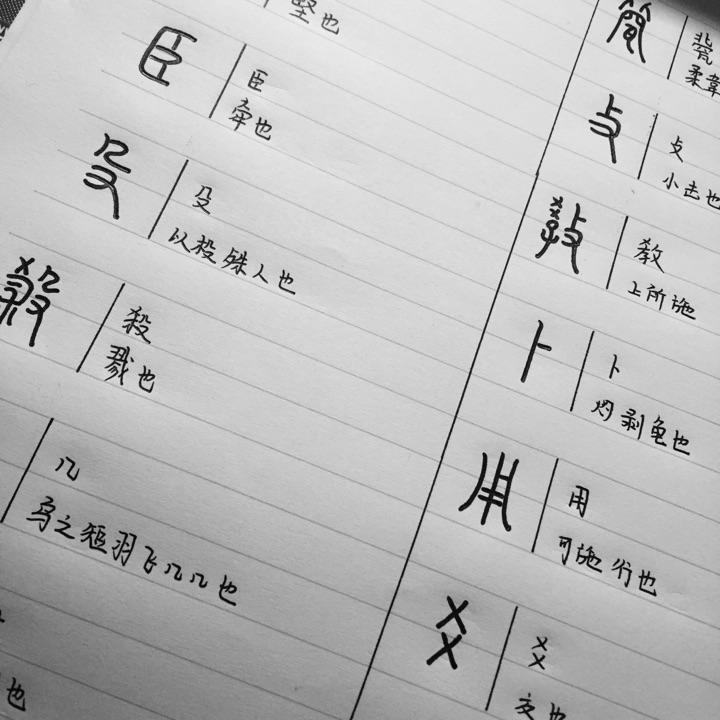 堅也
臣
臣
牽也
殳
殳
以投殊人也
殺
殺
戮也
几
鸟之短羽飞几几也
也
柔韋
攴
攴
小击也
敎
教
上所施
卜
卜
灼剥龟也
用
用
可施行也
爻
爻
交也